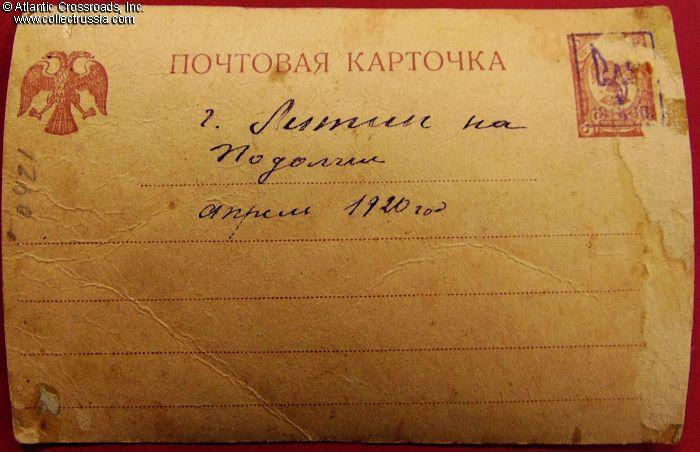 © Atlantic Crossroads, Inc.
www.collectrussia.com
ПОЧТОВАЯ КАРТОЧКА
г. Летич на
Подолии
апрель 1920 год
0421